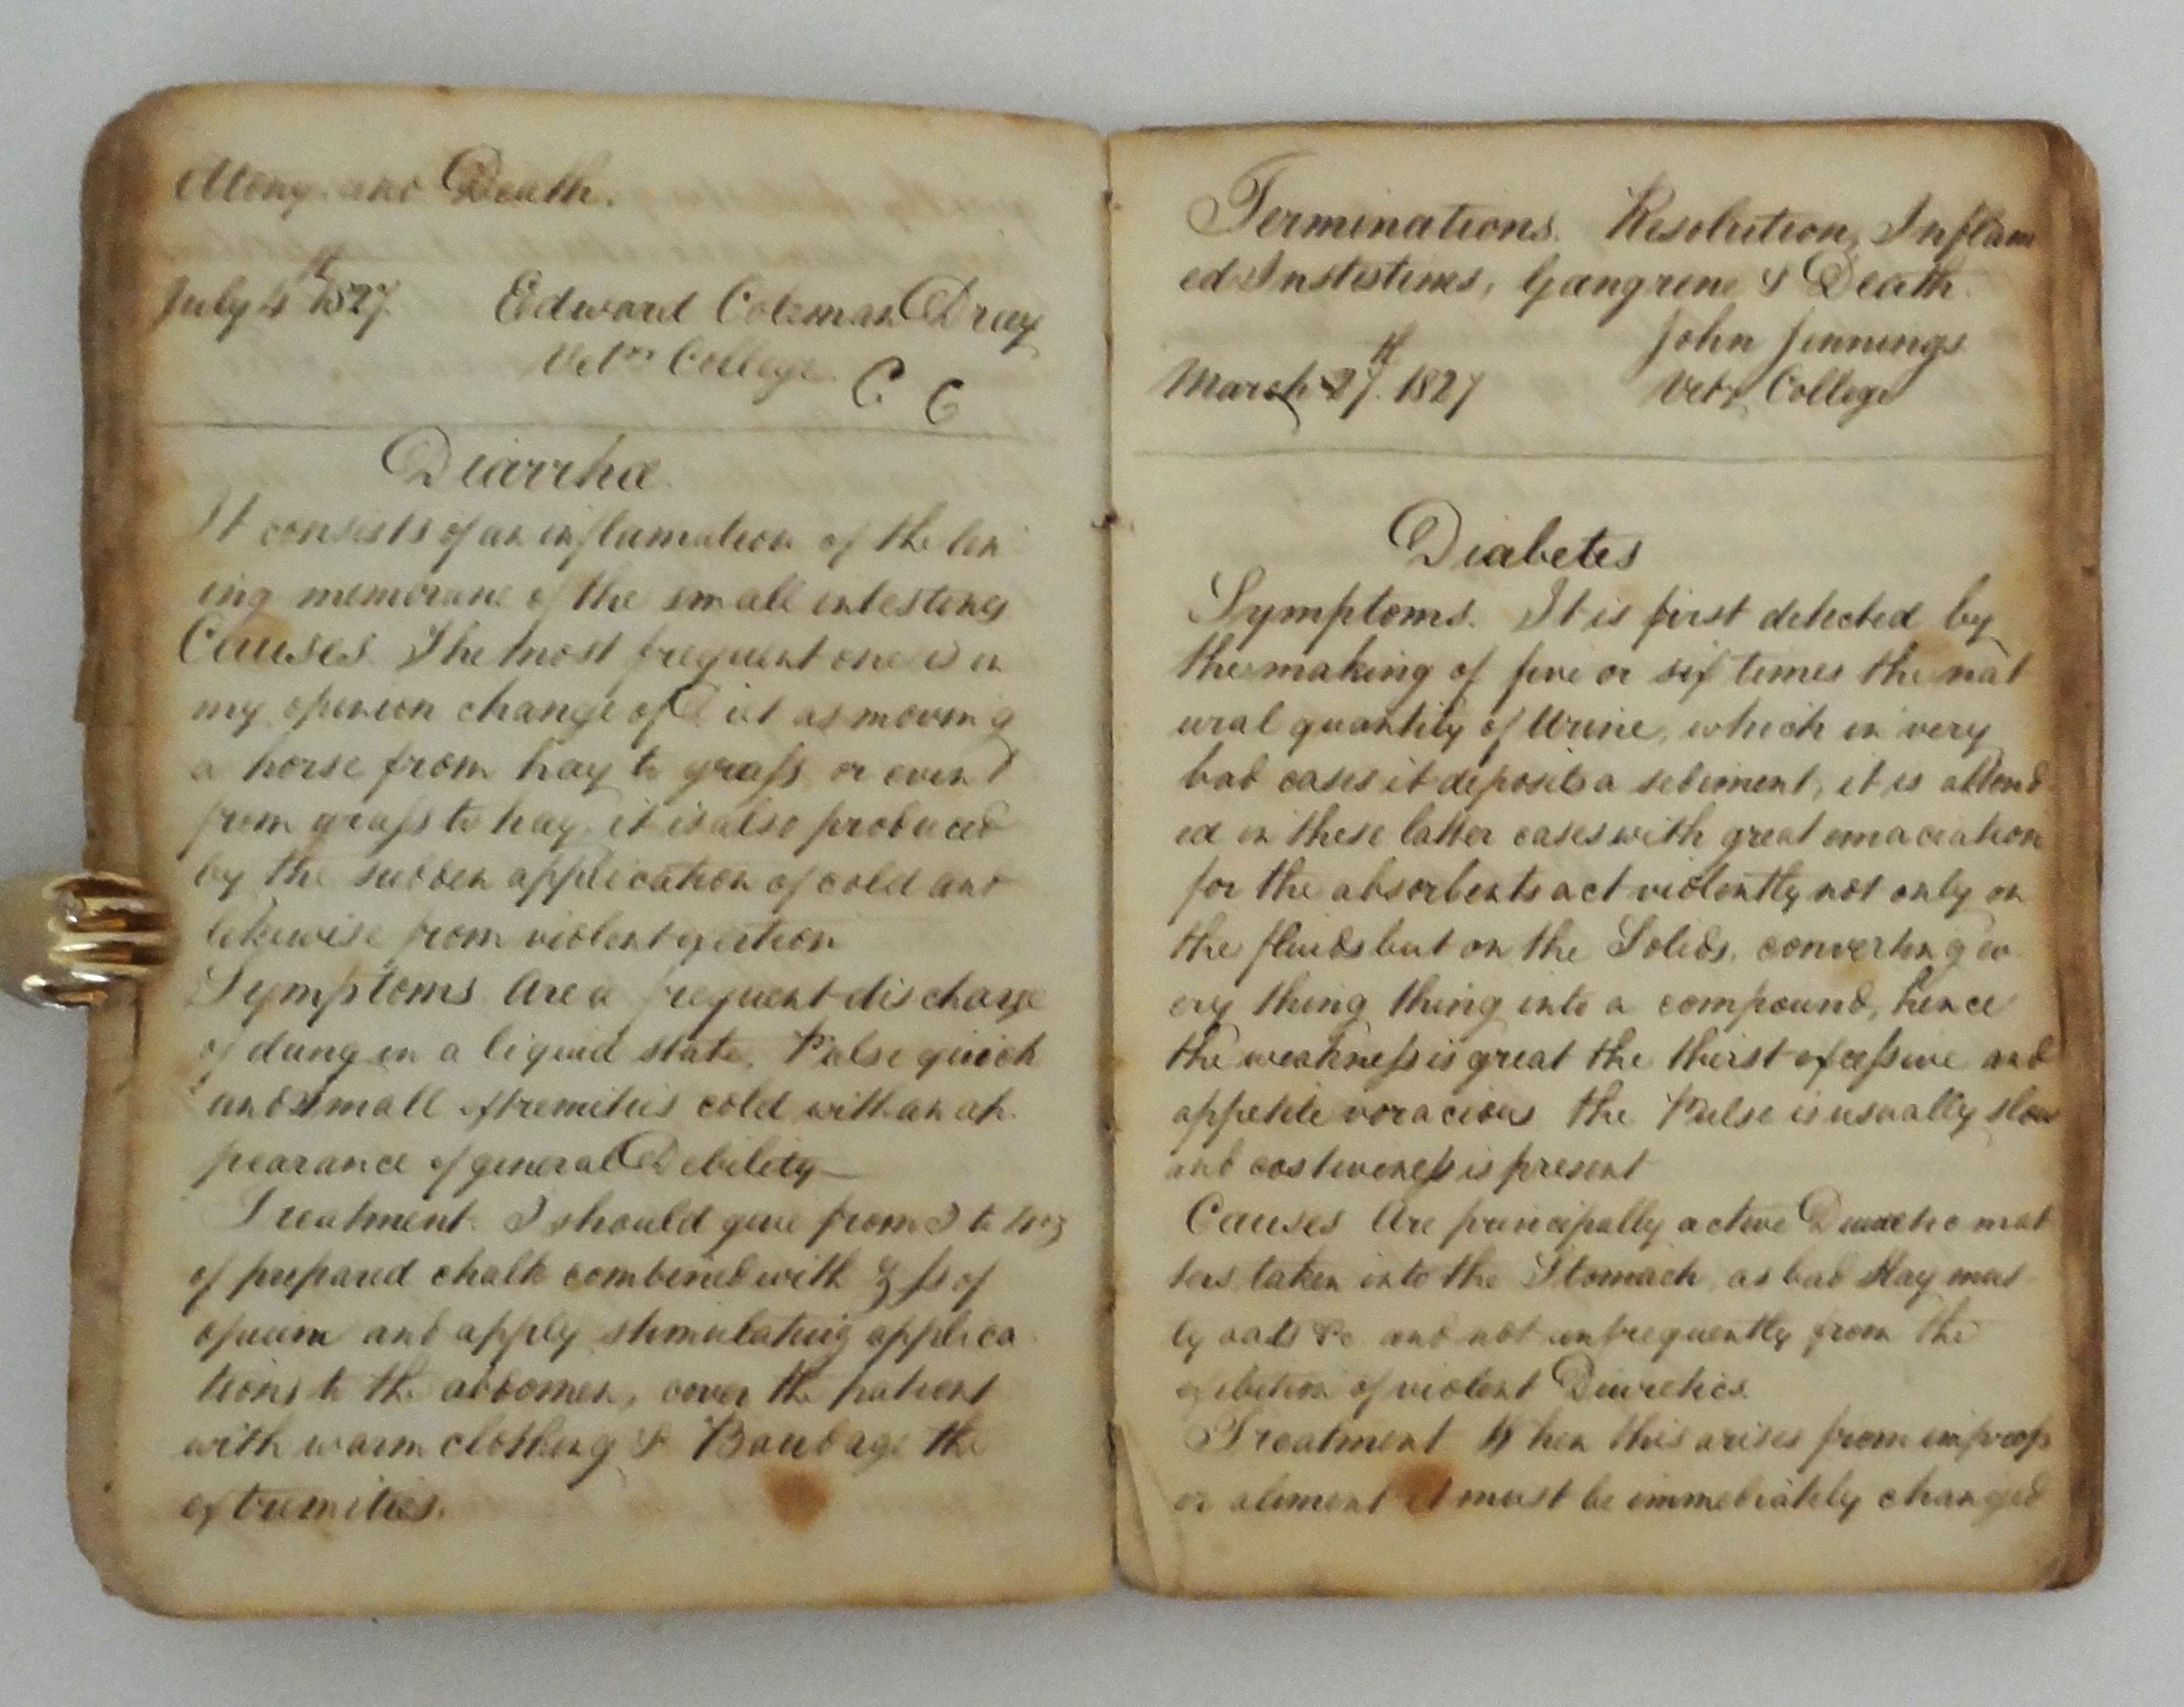 Atony and Death.
July 4th 1827. Edward Coleman Dray
Vety College C. C
Diarrhœ.
It consists of an inflamation of the lin
ing membrane of the small intestines
Causes. The most frequent one is in
my opinion change of Diet as moving
a horse from hay to grass, or even
from grass to hay, it is also produced
by the sudden application of cold and
likewise from violent exertion
Symptoms Are a frequent discharge
of dung in a liquid state, Pulse quick
and small extremities cold with an ap
pearance of general Debility—
Treatment. I should give from to
of prepared chalk combined with ʒ ſs of
opium and apply stimulating applica
tions to the abdomen, cover the patient
with warm clothing & Bandage the
extremities.
Terminations. Resolution, Inflam
ed Instistines, Gangrene & Death.
John Jennings
March 27th. 1827 Vety College
Diabetes
Symptoms. It is first detected by
the making of five or six times the nat
ural quantity of Urine, which in very
bad cases it deposits a sediment, it is attend
ed in these latter cases with great emaciation
for the absorbents act violently not only on
the fluids but on the Solids, converting ev
ery thing thing into a compound, hence
the weakness is great the thirst excessive and
appetite voracious the Pulse is usually slow
and costiveness is present
Causes Are principally active Diuretic mat
ters, taken into the Stomach, as bad Hay mus
ty oats &c and not unfrequently from the
exibition of violent Diuretics.
Treatment When this arises from improp
er aliment it must be immediately changed